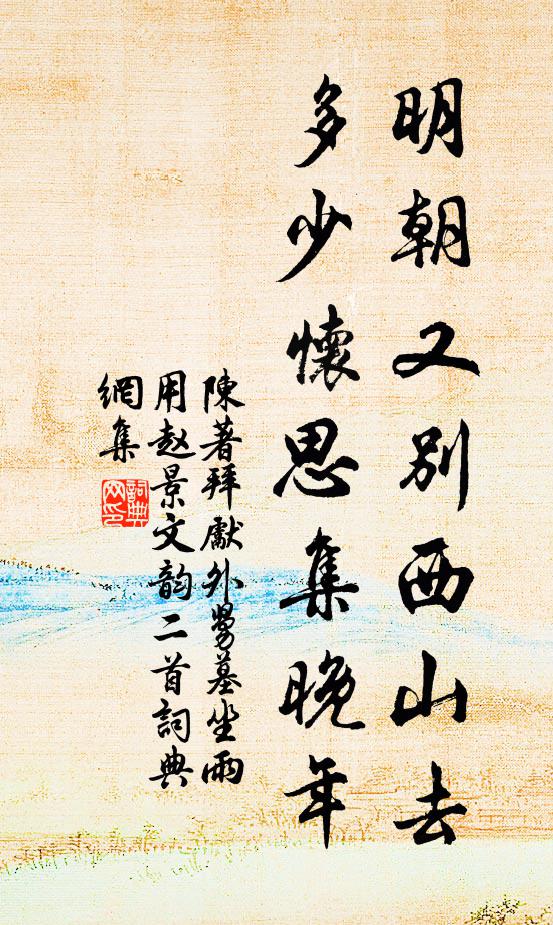 明朝又别西山去
多少懷思集晚年
陳著拜獻外舅墓坐雨
用赵景文韵二首詞典
網集
詞典
网印